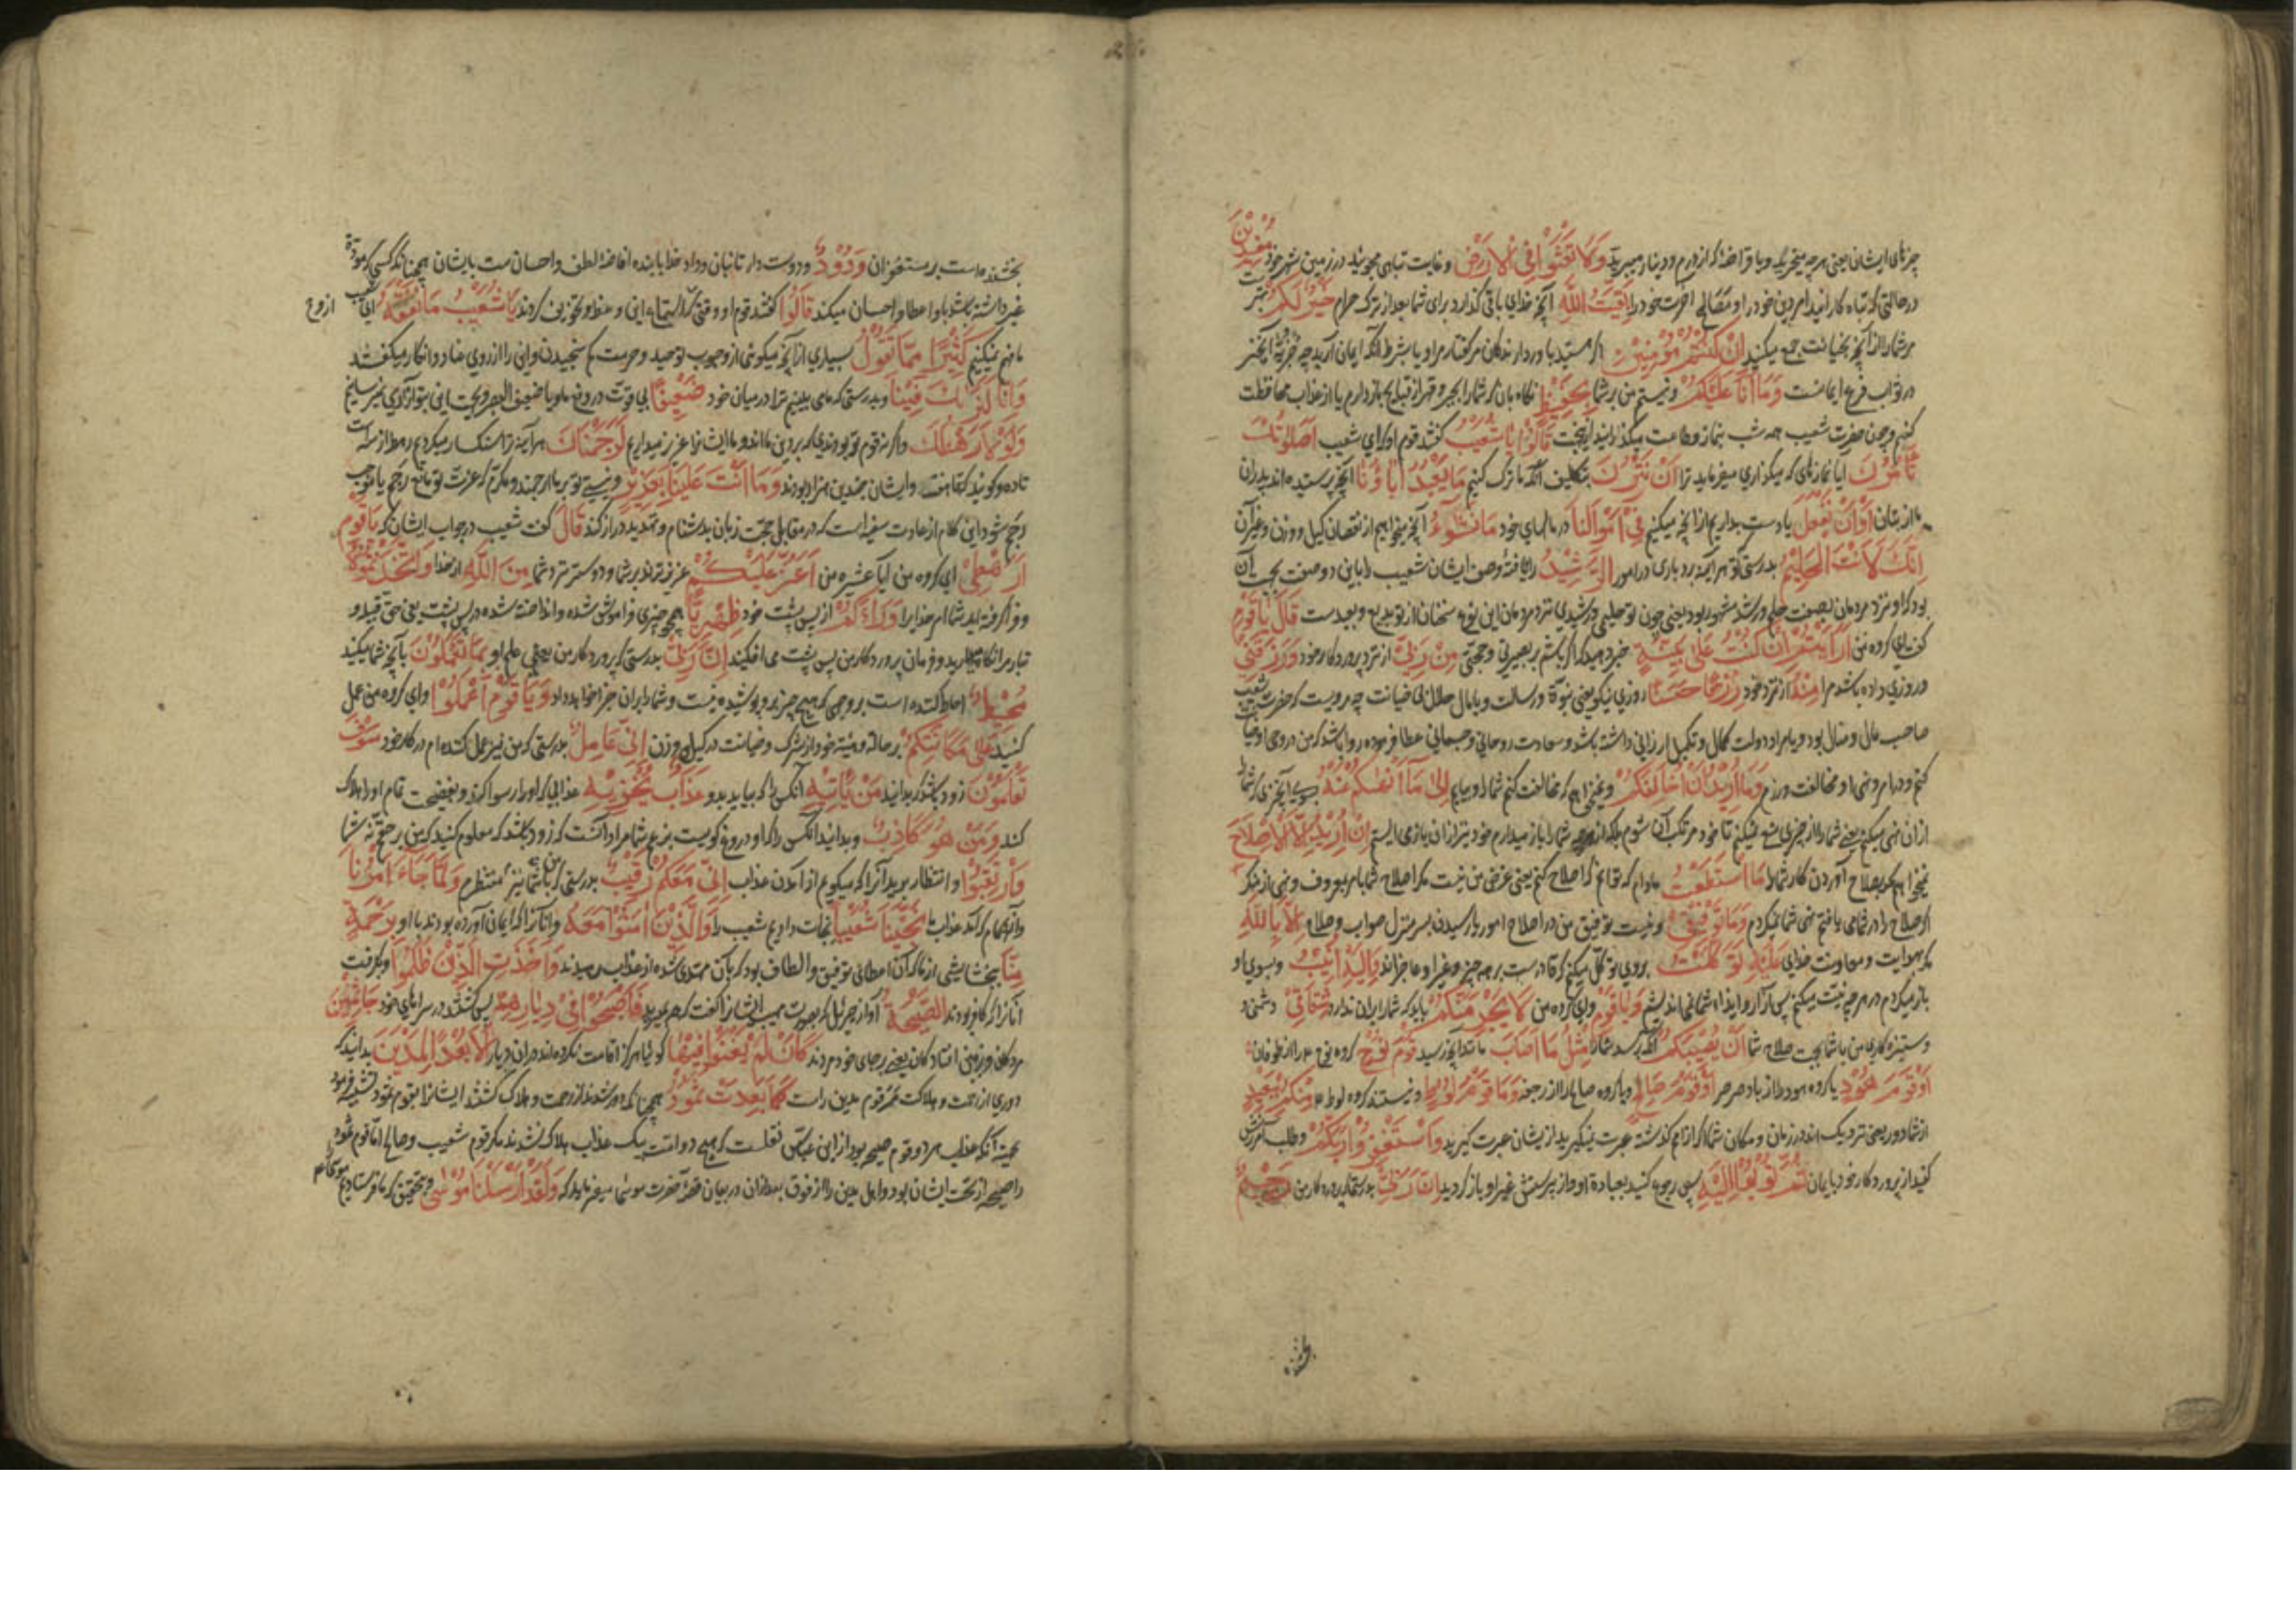 چیزهای ایشان یعنی هر چه میخریدند و یا قراضهٔ که از درم و دینار میبرید وَلَا تَعْثَوْا فِي الْأَرْضِ و غایت تباهی مجویید در زمین شهر خود مُفْسِدِينَ
در حالتی که تباه کارانید امر دین خود را و مصالح آخرت خود را بَقِيَّتُ اللَّهِ آنچه خدای باقی گذارد برای شما بعد از ترک حرام خَيْرٌ لَكُمْ بهتر است
مر شما را از آنچه بخیانت جمع میکنید إِنْ كُنْتُمْ مُؤْمِنِينَ اگر هستید باور دارندگان مر گفتار مرا و یا بشرط آنکه ایمان آرید چه
در ثواب فرع ایمانست وَمَا أَنَا عَلَيْكُمْ و نیستم من بر شما بِحَفِيظٍ نگاه بان که شما را بجبر و قهر از قبایح باز دارم یا از عذاب محافظت
کنم و چون حضرت شعیب همه شب بنماز و طاعت میگذرانید قَالُوا يَا شُعَيْبُ گفتند قوم او که ای شعیب أَصَلَوٰتُكَ
تَأْمُرُكَ آیا نمازهای که میگذاری میفرماید ترا أَنْ نَتْرُكَ بتکلیف آنکه ما ترک کنیم مَا يَعْبُدُ آبَاؤُنَا آنچه پرستیده اند پدران
ما از بتان أَوْ أَنْ نَفْعَلَ یا دست بداریم از آنچه میکنیم فِي أَمْوَالِنَا در مالهای خود مَا نَشَاءُ آنچه میخواهیم از نقصان کیل و وزن و غیر آن
إِنَّكَ لَأَنْتَ الْحَلِيمُ بدرستی که تو هر آینه بردباری در امور الرَّشِيدُ راه یافتهٔ وصف ایشان شعیب را باین دو صفت بجهت آن
بود که او نزد مردمان بصفت حلم و رشد مشهور بود یعنی چون تو حلیمی و رشیدی نزد مردمان این نوع سخنان از تو بدیع و بعیدست قَالَ يَا قَوْمِ
گفت ای گروه من أَرَأَيْتُمْ إِنْ كُنْتُ عَلَىٰ بَيِّنَةٍ خبر دهید که اگر باشم بر بصیرتی و حجتی مِنْ رَبِّي از نزد پروردگار خود وَرَزَقَنِي
و روزی داده باشد مرا مِنْهُ از نزد خود رِزْقًا حَسَنًا روزی نیکو یعنی نبوّة و رسالت و یا مال حلال بی خیانت چه مرویست که حضرت شعیب
صاحب مال و منال بود و یا مراد دولت کمال و تکمیل ارزانی داشته باشد و سعادت روحانی و جسمانی عطا فرموده روا باشد که من در وحی او خیانت
کنم و در امر و نهی او مخالفت ورزم وَمَا أُرِيدُ أَنْ أُخَالِفَكُمْ و نمیخواهم که مخالفت کنم شما را و بیایم إِلَىٰ مَا أَنْهَاكُمْ عَنْهُ بسوی آنچیزی که شما را
از آن نهی میکنم یعنی شما را از چیزی منع نمیکنم تا خود مرتکب آن شوم بلکه از هر چه شما را باز میدارم خود نیز از آن بازمی ایستم إِنْ أُرِيدُ إِلَّا الْإِصْلَاحَ
نمیخواهم مگر بصلاح آوردن کار شما را مَا اسْتَطَعْتُ مادام که توانم که اصلاح کنم یعنی غرض من نیست مگر اصلاح شما بامر بمعروف و نهی از منکر
اگر صلاح را در شما می یافتم نهی شما نمیکردم وَمَا تَوْفِيقِي و نیست توفیق من در اصلاح امور یا رسیدن بسر منزل صواب و صلاح إِلَّا بِاللَّهِ
مگر بهدایت و معاونت خدای عَلَيْهِ تَوَكَّلْتُ بروی توکل میکنم که قادرست بر همه چیز و غیر او عاجزاند وَإِلَيْهِ أُنِيبُ و بسوی او
باز میگردم در هر چه نیت میکنم پس از آزار و ایذاء شما نمی اندیشم وَيَا قَوْمِ و ای گروه من لَا يَجْرِمَنَّكُمْ باید که شما را بران ندارد شِقَاقِي دشمنی
و ستیزه کاری من با شما بجهت صلاح شما أَنْ يُصِيبَكُمْ آنکه برسد شما را مِثْلُ مَا أَصَابَ مانند آنچه رسید قَوْمَ نُوحٍ گروه نوح را از طوفان
أَوْ قَوْمَ هُودٍ یا گروه هود را از باد صرصر أَوْ قَوْمَ صَالِحٍ و یا گروه صالح را از رجفه وَمَا قَوْمُ لُوطٍ و نیستند گروه لوط مِنْكُمْ بِبَعِيدٍ
از شما دور یعنی نزدیک اند در زمان و مکان شما اگر از امم گذشته عبرت نمیگیرید از ایشان عبرت گیرید وَاسْتَغْفِرُوا رَبَّكُمْ و طلب آمرزش
کنید از پروردگار خود بایمان ثُمَّ تُوبُوا إِلَيْهِ پس رجوع کنید بعبادة او و از پرستش غیر او باز گردید إِنَّ رَبِّي بدرستیکه پروردگار من رَحِيمٌ
بخشنده
بخشنده است بر مستغفران وَدُودٌ و دوست دار تائبان و وداد خدا با بنده افاضهٔ لطف و احسانست بایشان همچنانکه کسی که مودّة
غیر داشته باشد با او اعطا و احسان میکند قَالُوا گفتند قوم او وقتی که استماع این وعظ و تخویف کردند يَا شُعَيْبُ مَا نَفْقَهُ ای شعیب
ما فهم نمیکنیم كَثِيرًا مِمَّا تَقُولُ بسیاری از آنچه میگوئی از وجوب توحید و حرمت کم سنجیدن و این را از روی عناد و انکار میگفتند
وَإِنَّا لَنَرَاكَ فِينَا و بدرستی که ما می بینیم ترا در میان خود ضَعِيفًا بی قوّت در دفع ما و یا ضعیف البصر
وَلَوْلَا رَهْطُكَ و اگر نه قوم تو بودندی که بر دین ما اند و ما ایشانرا عزیز میداریم لَرَجَمْنَاكَ هر آینه ترا سنگسار میکردیم رهط از سه است
تا ده و گویند تا هفت و ایشان چندین هزار بودند وَمَا أَنْتَ عَلَيْنَا بِعَزِيزٍ و نیستی تو بر ما ارجمند و مکرّم که عزت تو مانع رجم یا موجب
رجم شود این کلام از عادت سفیه است که در مقابل حجّت زبان بدشنام و تهدید دراز کند قَالَ گفت شعیب در جواب ایشان که يَا قَوْمِ
أَرَهْطِي ای گروه من آیا عشیره من أَعَزُّ عَلَيْكُمْ عزیز ترند بر شما و دوستر نزد شما مِنَ اللَّهِ از خدا وَاتَّخَذْتُمُوهُ
و فرا گرفته اید شما امر خدایرا وَرَاءَكُمْ از پس پشت خود ظِهْرِيًّا همچو چیزی فراموش شده و انداخته شده در پس پشت یعنی حق
مرا نگاه میدارید و فرمان پروردگار من پس پشت می افکنید إِنَّ رَبِّي بدرستی که پروردگار من یعنی علم او بِمَا تَعْمَلُونَ بآنچه شما میکنید
مُحِيطٌ احاطه کننده است بر وجهی که هیچ چیز برو پوشیده نیست و شما را بران جزا خواهد داد وَيَا قَوْمِ اعْمَلُوا و ای گروه من عمل
کنید عَلَىٰ مَكَانَتِكُمْ بر حالت و هیئة خود از شرک و خیانت در کیل و وزن إِنِّي عَامِلٌ بدرستی که من نیز عمل کننده ام در کار خود سَوْفَ
تَعْلَمُونَ زود باشد که بدانید مَنْ يَأْتِيهِ آنکس را که بیاید بدو عَذَابٌ يُخْزِيهِ عذابی که او را رسوا کند و بفضیحت تمام او را هلاک
کند وَمَنْ هُوَ كَاذِبٌ و بدانید آنکس را که او دروغ گویست بزعم شما مراد آنست که زود باشد که معلوم کنید که من بر حقم نه شما
وَارْتَقِبُوا و انتظار برید آنرا که میگویم از آمدن عذاب إِنِّي مَعَكُمْ رَقِيبٌ بدرستی که من با شما نیز منتظرم وَلَمَّا جَاءَ أَمْرُنَا
و آنهنگام که آمد عذاب ما نَجَّيْنَا شُعَيْبًا نجات دادیم شعیب را وَالَّذِينَ آمَنُوا مَعَهُ و آنانرا که ایمان آورده بودند با او بِرَحْمَةٍ
مِنَّا ببخشایشی از ما که آن اعطای توفیق و الطاف بود که بآن مهتدی شده از عذاب رهیدند وَأَخَذَتِ الَّذِينَ ظَلَمُوا و بگرفت
آنانرا که کافر بودند الصَّيْحَةُ آواز جبرئیل که بصورت مهیب ایشانرا گفت که همه بمیرید فَأَصْبَحُوا فِي دِيَارِهِمْ پس گشتند در سراهای خود جَاثِمِينَ
مردگان بر زمین افتادگان یعنی بر جای خود مردند كَأَنْ لَمْ يَغْنَوْا فِيهَا گوئیا هرگز اقامت نکرده اند دران دیار أَلَا بُعْدًا لِمَدْيَنَ بدانید که
دوری از رحمت و هلاکت مر قوم مدین راست كَمَا بَعِدَتْ ثَمُودُ همچنانکه دور شدند از رحمت و هلاک گشتند ایشانرا بقوم ثمود تشبیه فرمود
بجهة آنکه عذاب هر دو قوم صیحه بود از ابن عباس نقلست که هیچ دو امت بیک عذاب هلاک نشدند مگر قوم شعیب و صالح اما قوم ثمود
را صیحه از تحت ایشان بود و اهل مدین را از فوق بعد از آن در بیان قصهٔ حضرت موسی میفرماید که وَلَقَدْ أَرْسَلْنَا مُوسَىٰ و بتحقیق که ما فرستادیم موسی را